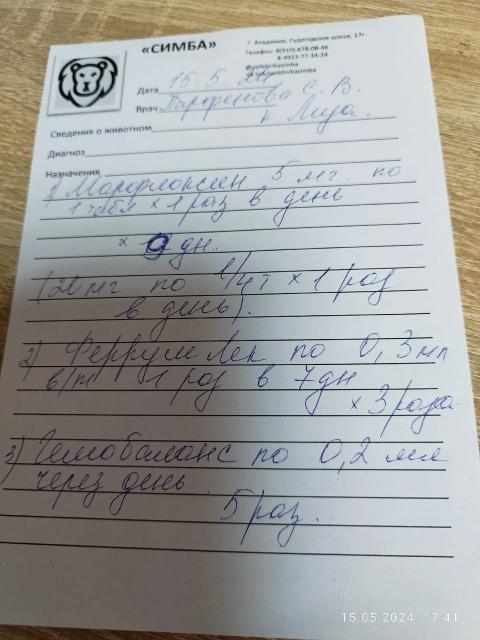 «СИМБА»
Г. Владимир, Судогодское шоссе, 17г
Телефон: 8(910)-678-08-46
8-4922-77-34-24
Дата 15.5.24
Врач Парфенова С. В.
к. Лиза.
Сведения о животном
Диагноз
Назначения
1) Марфлоксин 5 мг. по
1 табл × 1 раз в день
× 9 дн.
(20 мг по 1/4 т × 1 раз
в день).
2) Феррум Лек по 0,3 мл
в/м 1 раз в 7 дн
× 3 раза.
3) Гемобаланс по 0,2 мл
через день
5 раз.
15.05.2024 17:41